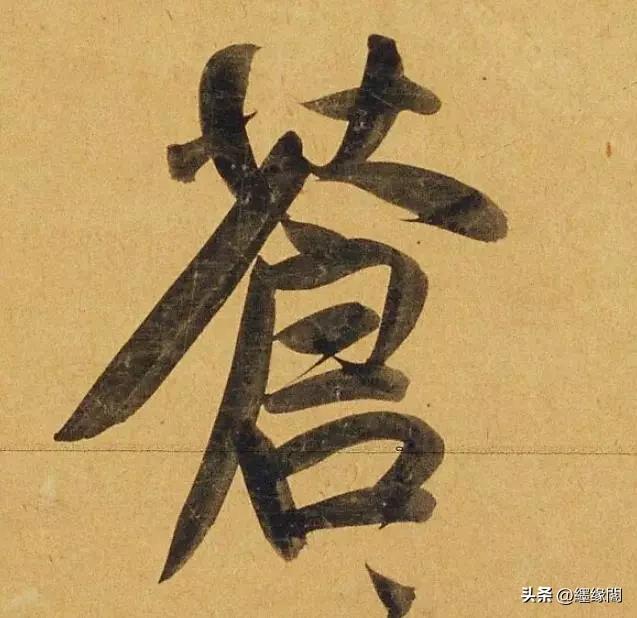 蒼
头条 @纆缘阁